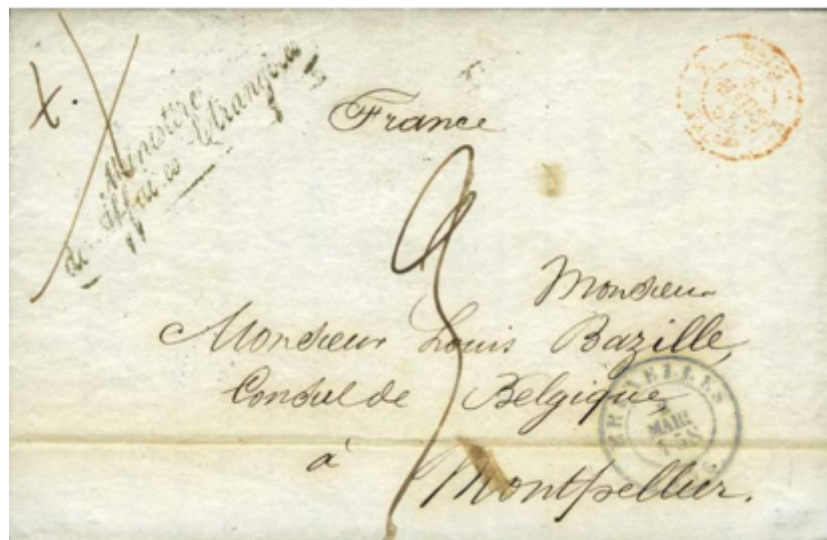 Ministère
des Affaires Etrangères
France
Monsieur
Monsieur Louis Bazille,
Consul de Belgique,
à
Montpellier.
BRUXELLES
MARS